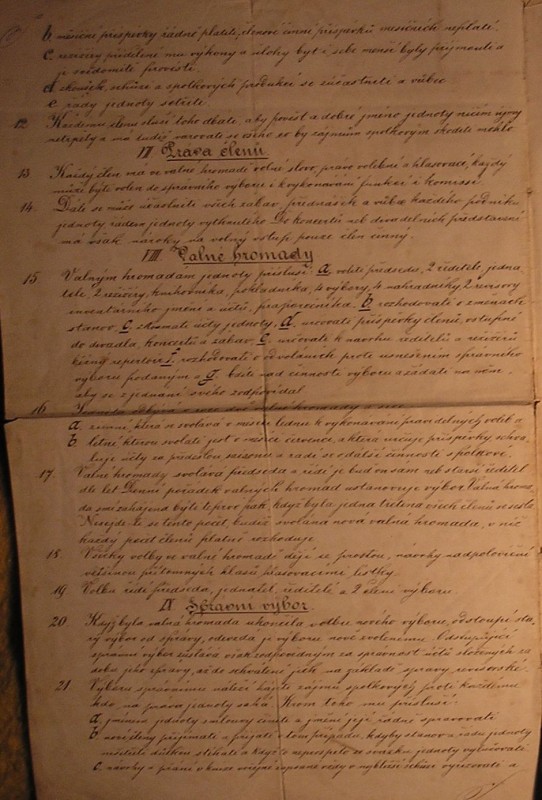 b. měsíční příspěvky řádně platiti, členové činní příspěvků měsíčních neplatí,
c. režiséry přidělené mu výkony a úlohy byť i sebe menší byly přijmouti a
je svědomitě provésti
d. zkoušek, schůzí a spolkových produkcí se súčastniti a vůbec
e. řády jednoty šetřiti.
12. Každému členu sluší toho dbáti, aby pověst a dobré jméno jednoty ničím újmy
netrpěly a má tudíž varovati se všeho co by zájmům spolkovým škoditi mohlo
Práva členů
13 Každý člen má ve valné hromadě volné slovo, právo volební a hlasovací, každý
může býti volen do správního výboru i k vykonávání funkcí i komisí.
14. Dále se může súčastniti všech zábav, přednášek a vůbec každého podniku
jednoty, řádem jednoty vytknutého. Do koncertů neb divadelních představení
má však nároky na volný vstup pouze člen činný.
VIII Valné hromady
15. Valným hromadám jednoty přísluší: a, voliti předsedu, 2 ředitele, jedna-
tele, 2 režiséry, knihovníka, pokladníka, 4 výbory, 4 náhradníky, 2 revisory
inventárního jmění a účtů, praporečníka. b, rozhodovati o změnách
stanov, c, zkoumati účty jednoty, d, určovati příspěvky členů, vstupné
do divadla, koncertů a zábav. e, určovati k návrhu ředitelů a režisérů
repertoir f, rozhodovati o odvoláních proti usnešením správního
výboru podaným a g, bdíti nad činností výboru a žádati na něm,
aby se z jednání svého zodpovídal
16. valné hromady a sice
a, zimní, která se svolává v měsíci lednu k vykonávání pravidelných voleb a
b, letní, kterou svolati jest v měsíci červenci, a která určuje příspěvky schva-
luje účty za předešlou saisonu a radí se o další činnosti spolkové.
17. Valné hromady svolává předseda a řídí je buď on sám neb starší ředitel
dle let. Denní pořádek valných hromad ustanovuje výbor. Valná hroma-
da smí zahájena býti teprve pak, když byla jedna třetina všech členů se sešla
Nesejde-li se tento počet, budiž svolána nová valná hromada, v níž
každý počet členů platně rozhoduje
18 Všecky volby ve valné hromadě dějí se prostou, návrhy nadpoloviční
většinou přítomných hlasů hlasovacími lístky.
19. Volbu řídí předseda, jednatel, ředitelé a 2 členi výboru.
IX Správní výbor.
20 Když byla valná hromada ukončila volbu nového výboru, odstoupí sta-
rý výbor od správy, odevzdá je výboru nově zvolenému. Odstupující
správní výbor zůstává však zodpovědným za správnost účtů složených za
doby jeho správy, až do schválení jich na základě zprávy revisorské.
21 Výboru správnímu náleží hájiti zájmů spolkových proti každému
kdo na práva jednoty sahá. Krom toho mu přísluší:
a, jménem jednoty smlouvy činiti a jmění její řádně spravovati
b, nové členy přijímati a přijaté v tom případu, kdyby stanov a řádu jednoty
nešetřili důtkou stíhati a když to neprospělo ze svazku jednoty vylučovati
c, návrhy a přání v knize nejblíže schůzi vyřizovati a